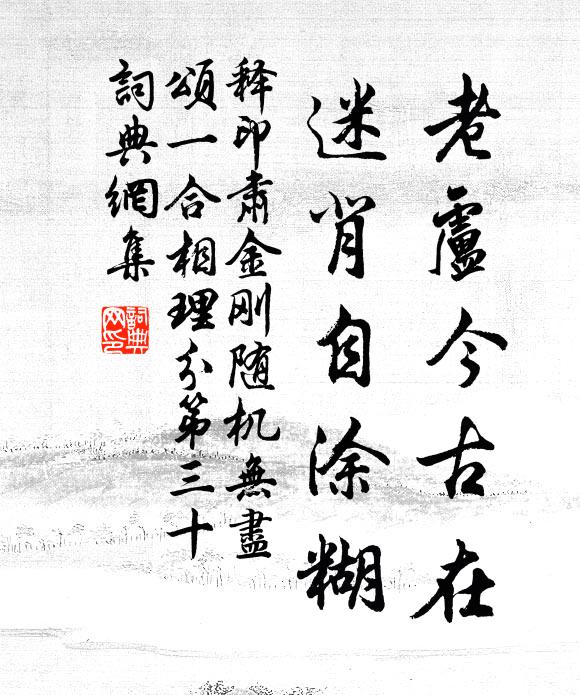 老廬今古在
迷背自涂糊
释印肅金刚随机無盡
頌一合相理分第三十
詞典網集
詞典网印